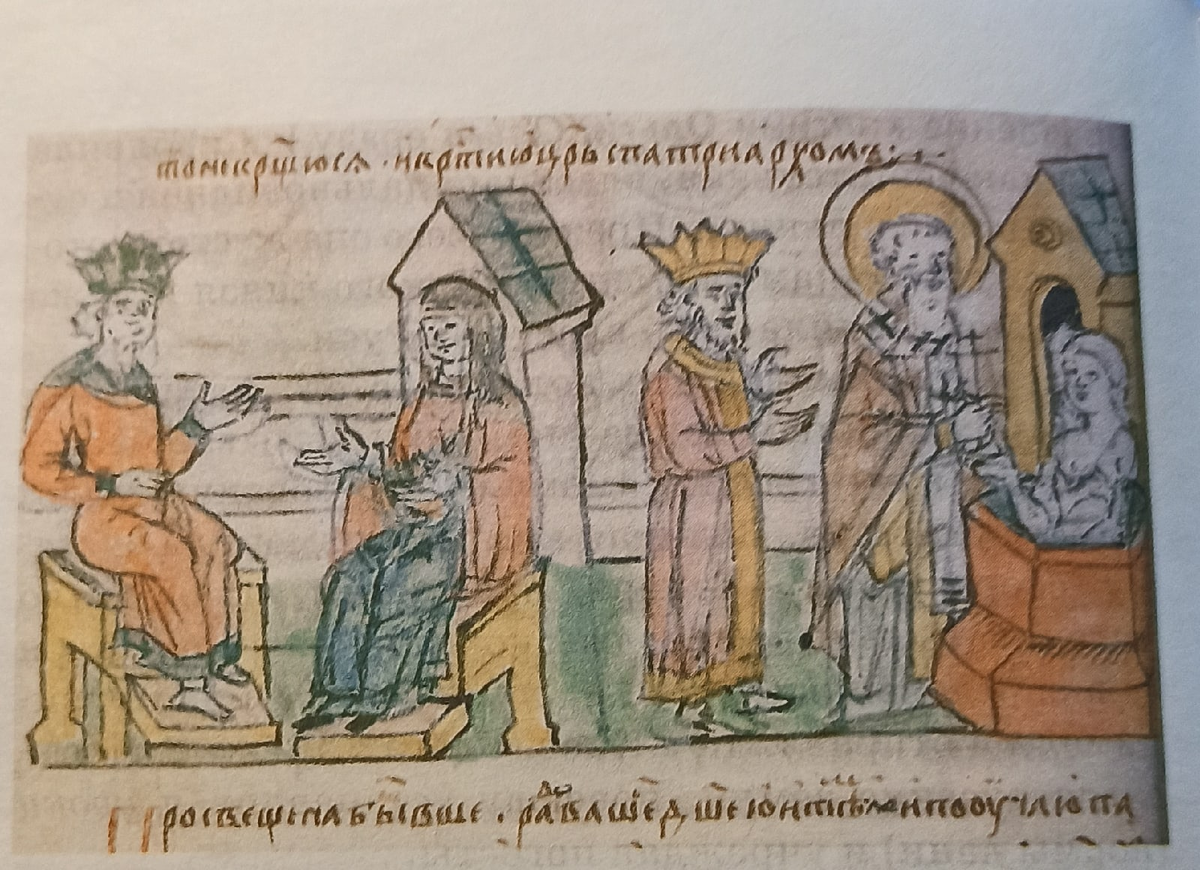 то не крщ҃юсѧ · и крт҃и ю цр҃ь с патриархомъ :·
Просвещена бъівше · радовашесѧ дш҃ею и тѣлом и пооучаю па